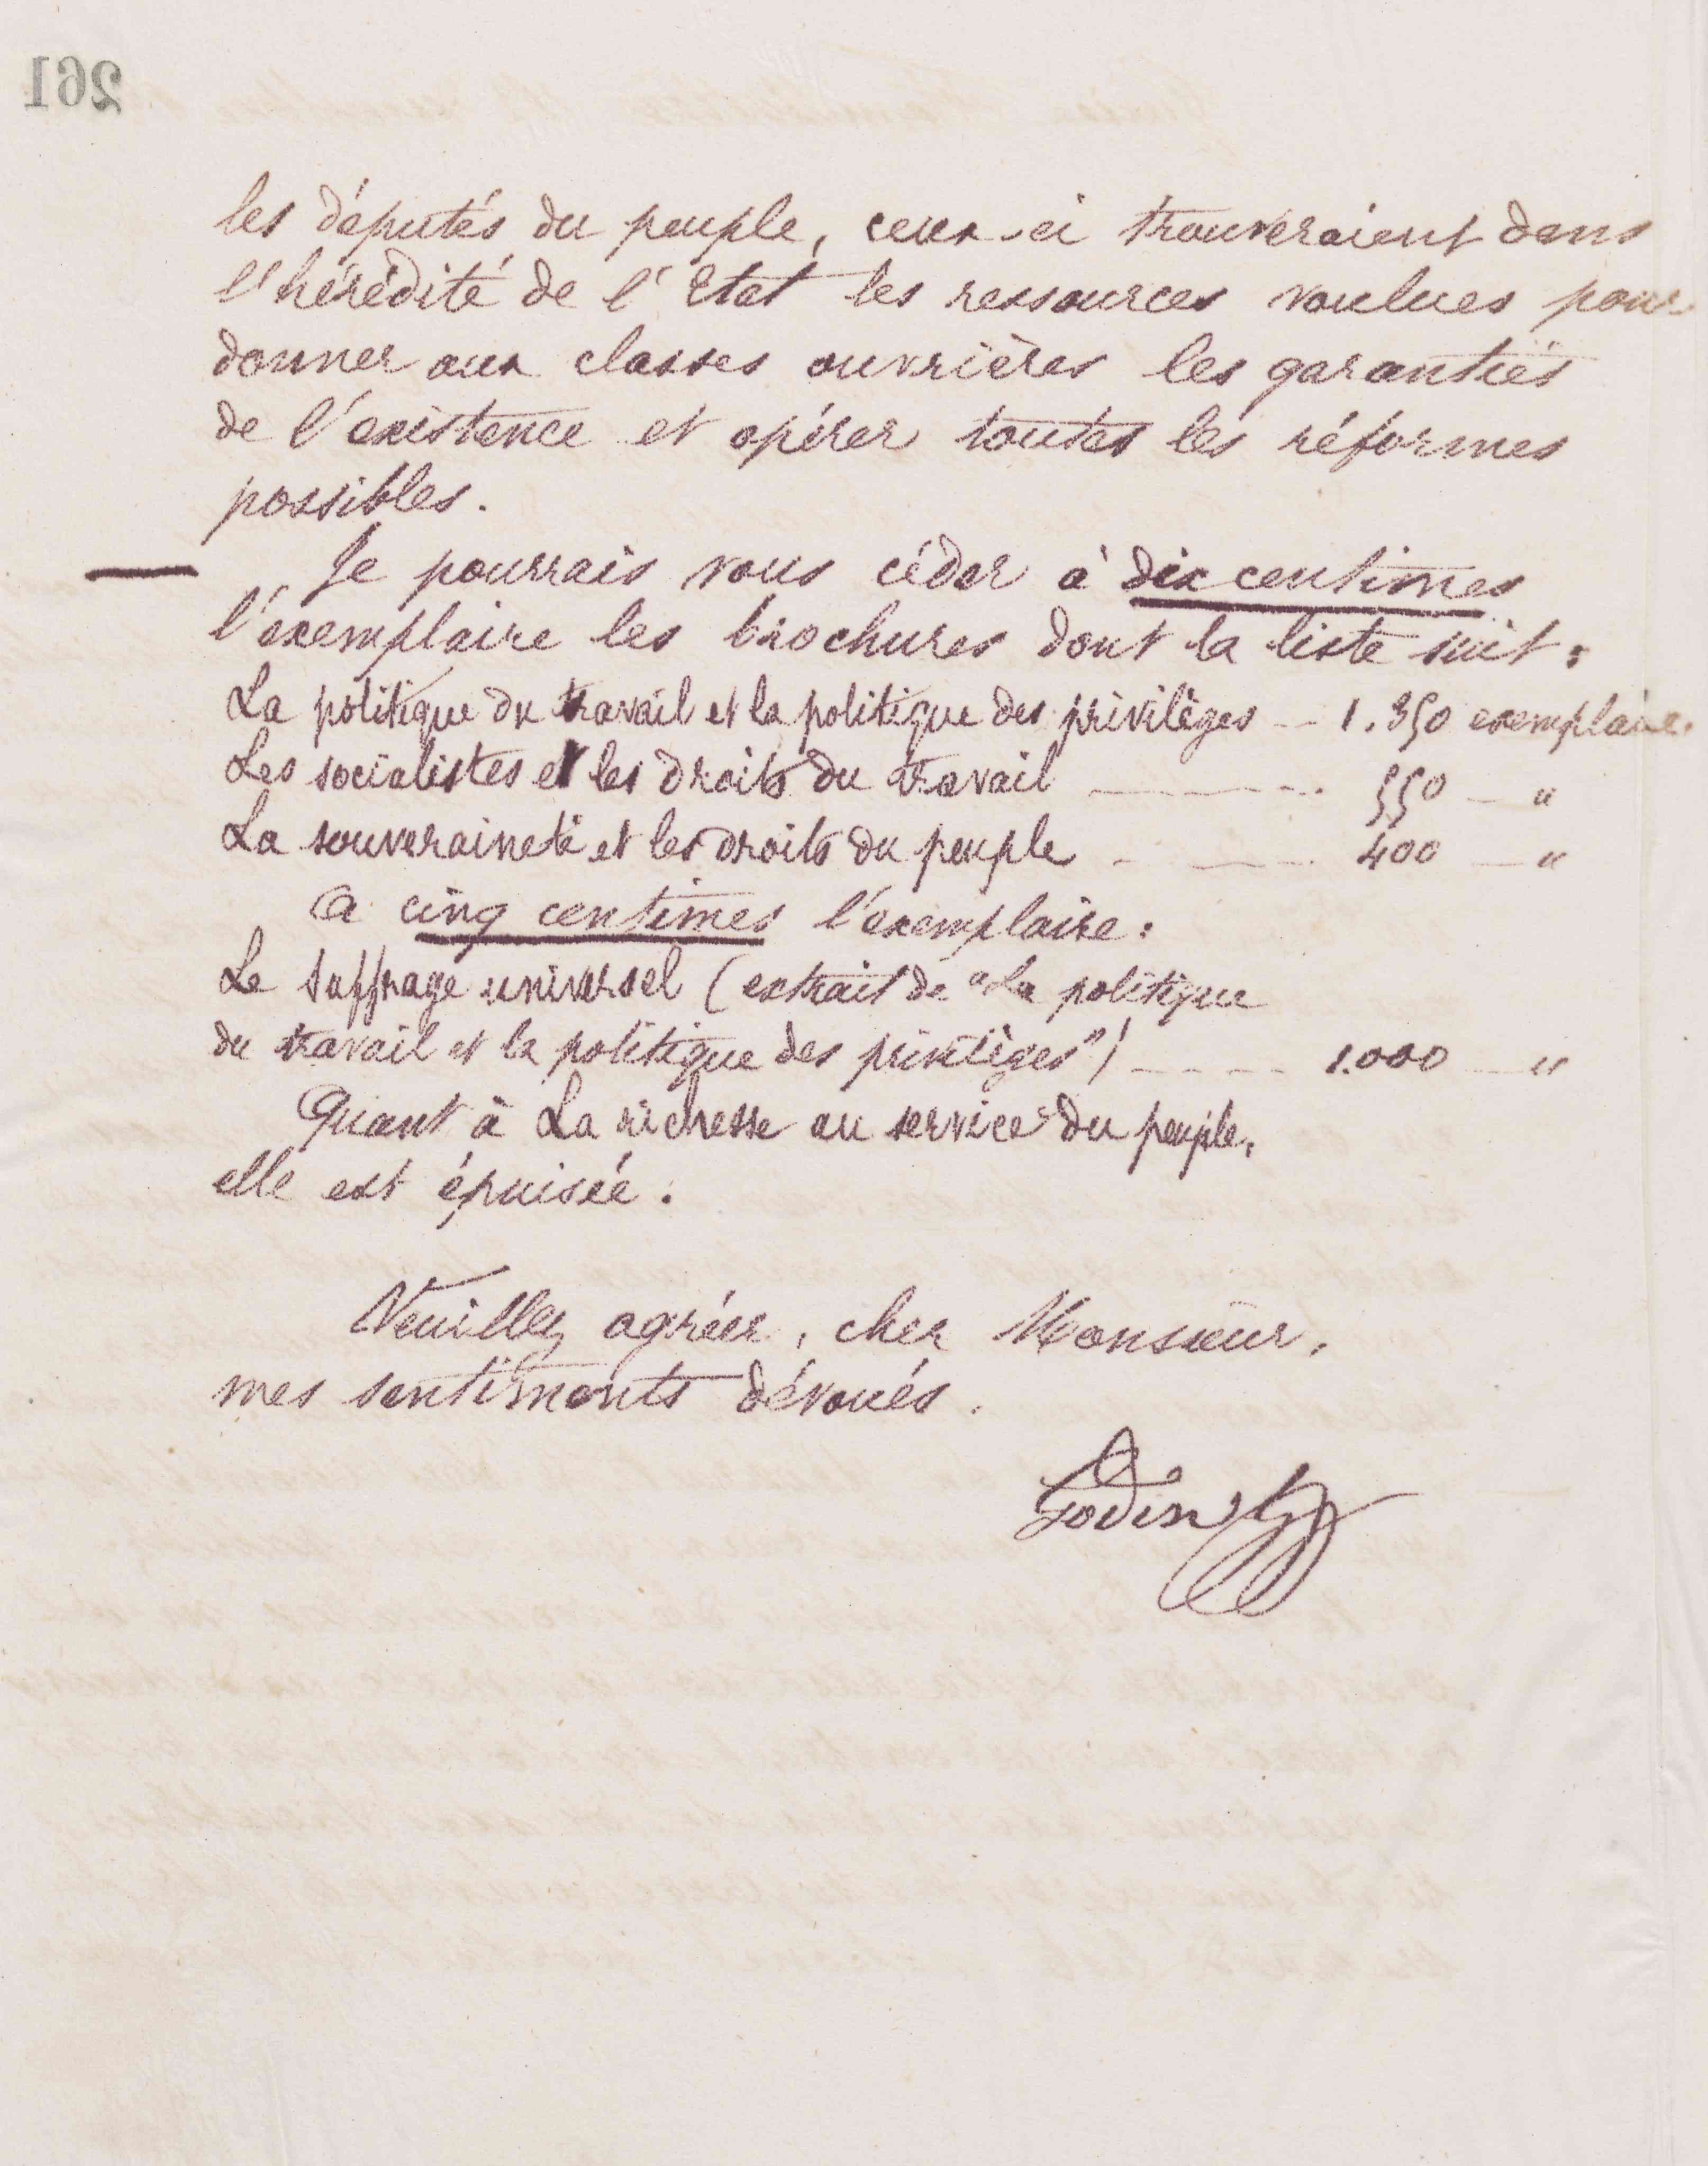 261
les députés du peuple, ceux-ci trouveraient dans
l'hérédité de l'Etat les ressources voulues pour
donner aux classes ouvrières les garanties
de l'existence et opérer toutes les réformes
possibles.
— Je pourrais vous céder à dix centimes
l'exemplaire les brochures dont la liste suit :
La politique du travail et la politique des privilèges -- 1.350 exemplaires
Les socialistes et les droits du travail ---- 550 — "
La souveraineté et les droits du peuple ---- 400 — "
A cinq centimes l'exemplaire :
Le suffrage universel (extrait de "La politique
du travail et la politique des privilèges") ---- 1.000 — "
Quant à La richesse au service du peuple,
elle est épuisée.
Veuillez agréer, cher Monsieur,
mes sentiments dévoués.
Godin